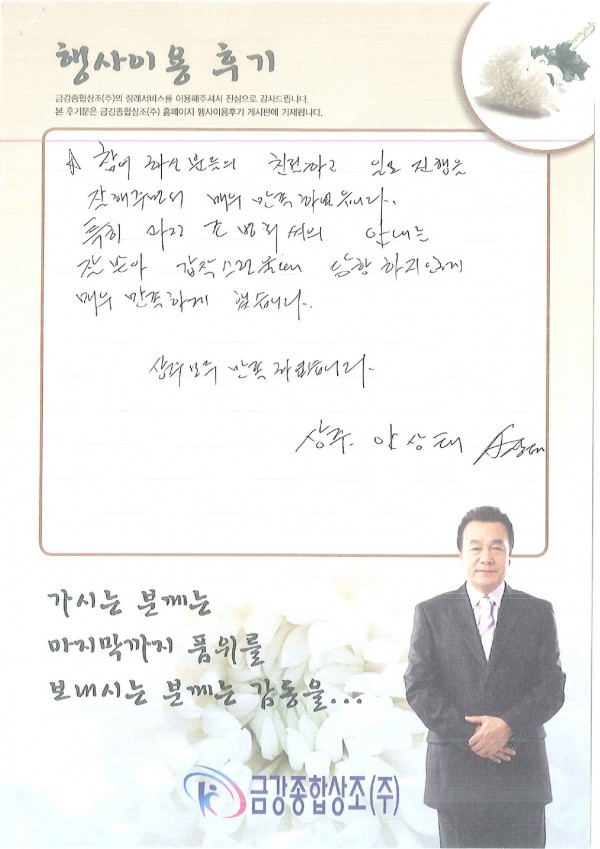 행사이용 후기
금강종합상조(주)의 장례서비스를 이용해주셔서 진심으로 감사드립니다.
본 후기문은 금강종합상조(주) 홈페이지 행사이용후기 게시판에 기재됩니다.
참여 하신 분들의 친절하고 진행을
잘해주면서 매우 만족 하였습니다.
특히 안내는
잘 받아 당황하지않게
매우 만족하게 했습니다.
모두 만족 하였습니다.
상주. 안상태
가시는 분께는
마지막까지 품위를
보내시는 분께는 감동을...
금강종합상조(주)